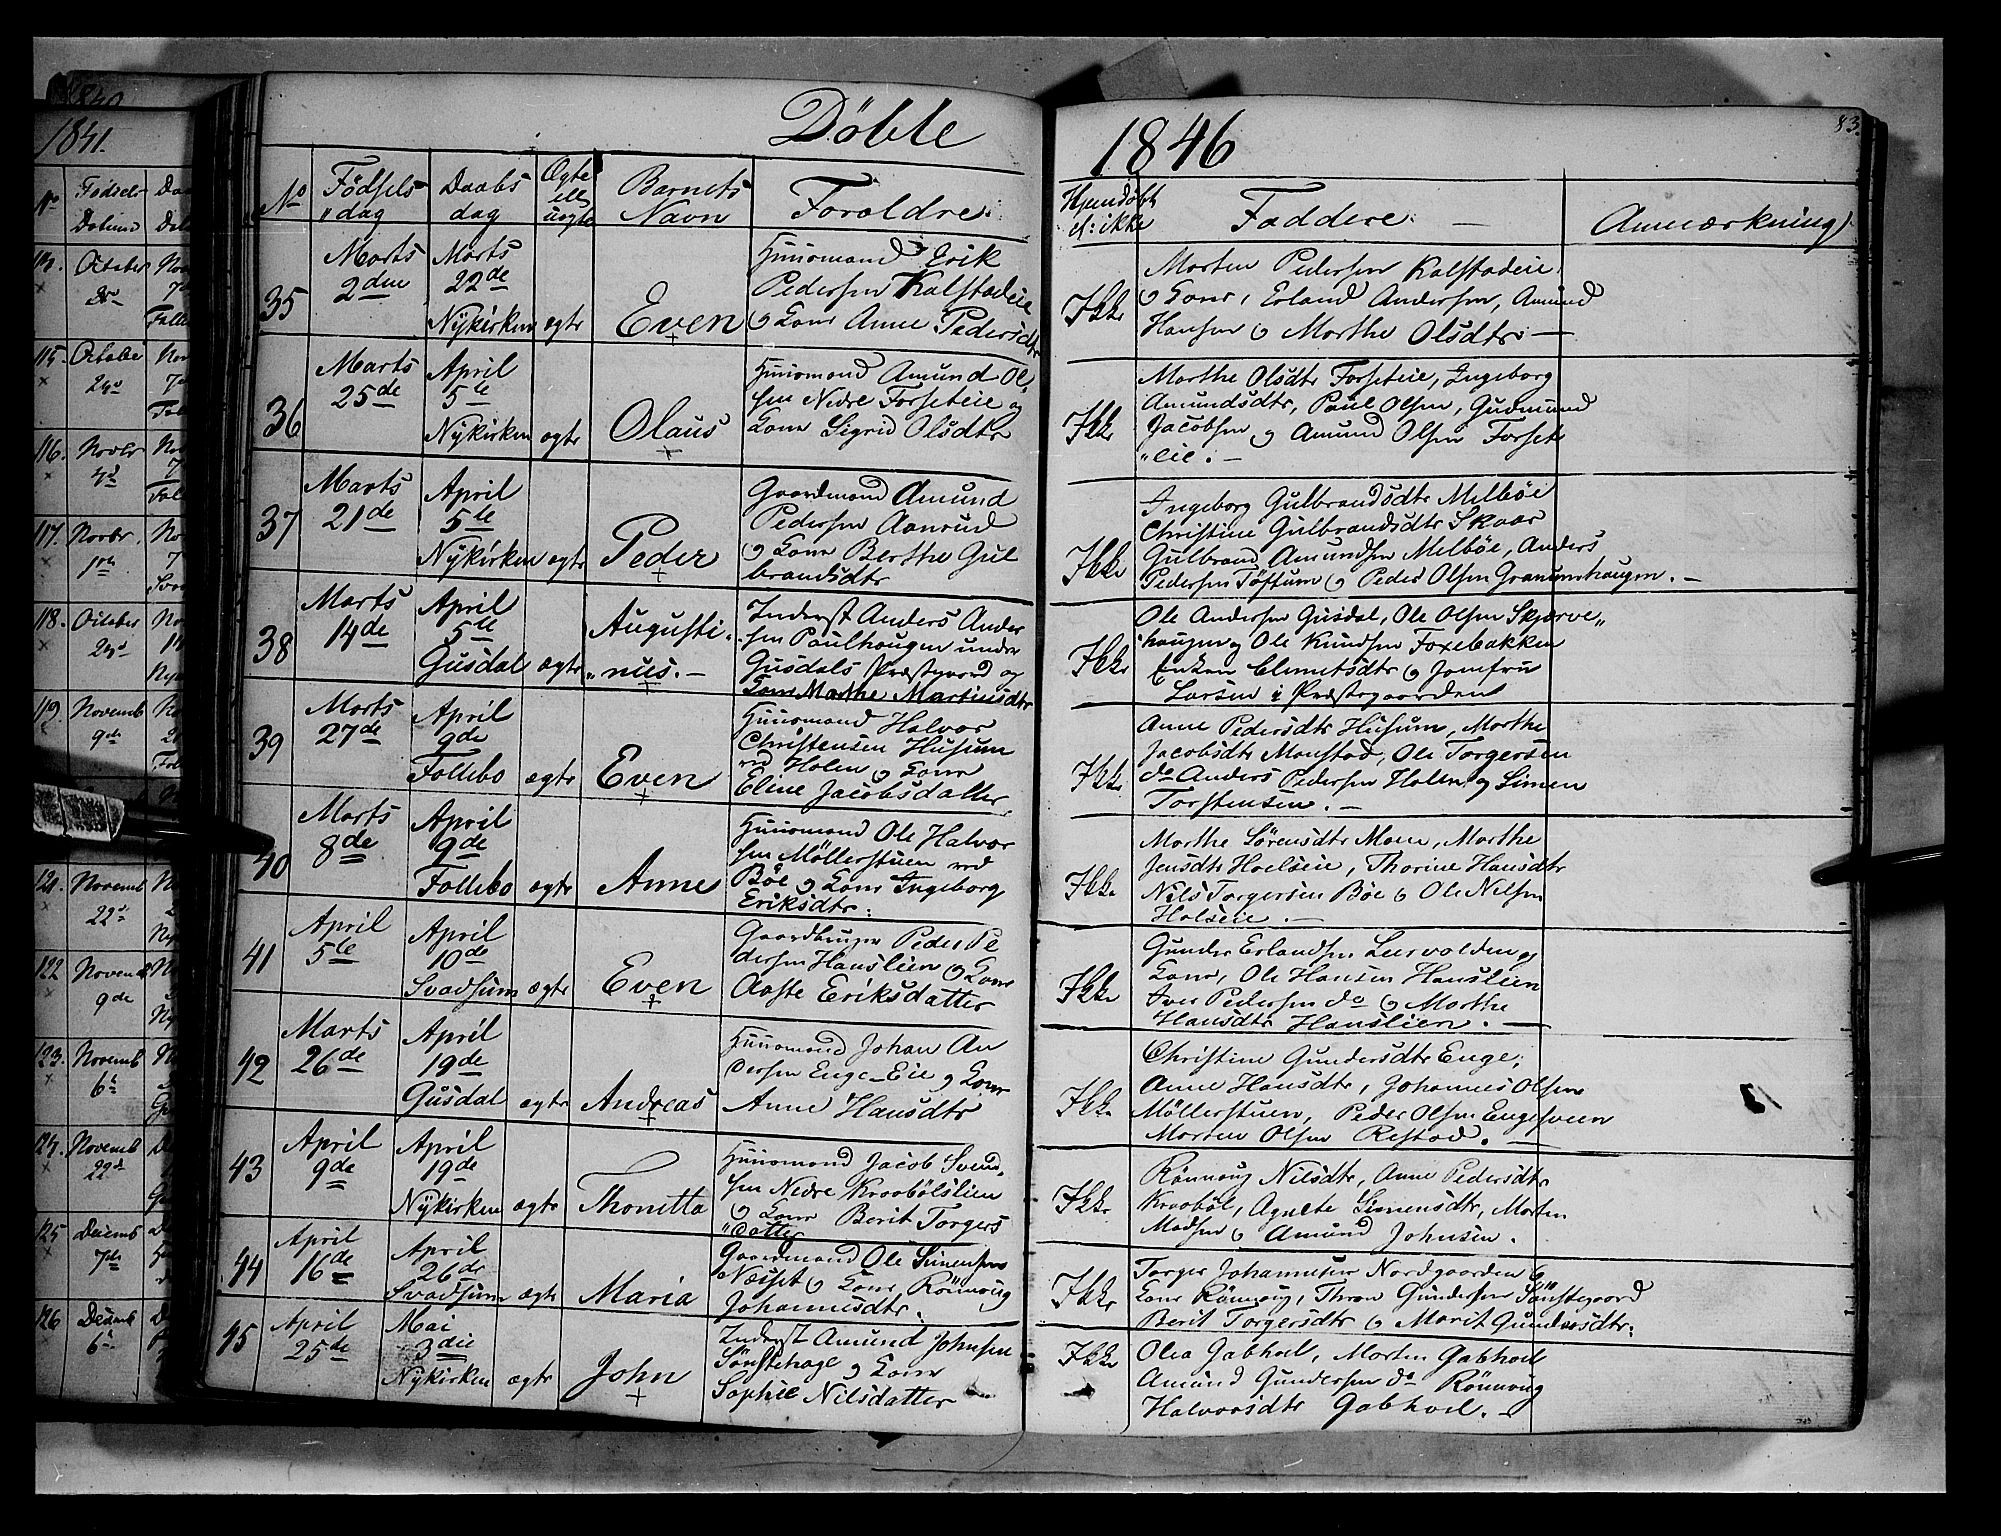 Döbte
1846
83.
No
Födsels
dag
Daabs
dag
Ægte
ell
uægte
Barnets
Navn
Forældre:
Hjemdöbt
el: ikke
Faddere: —
Anmærkning
35
Marts
2den
Marts
22de
Nykirken
ægte
Even
Huusmand Erik
Pedersen Kalstadeie
og Kone Anne Pedersdtr
Ikke
Morten Pedersen Kalstadeie
og Kone, Erland Andersen, Amund
Hansen og Marthe Olsdtr —
36
Marts
25de
April
5te
Nykirken
ægte
Olaus
Huusmand Amund Ol,
sen Nedre Forseteie og
Kone Sigrid Olsdtr
Ikke
Marthe Olsdtr Forseteie, Ingeborg
Amundsdtr, Paul Olsen, Gudmund
Jacobsen og Amund Olsen Forset
"eie. —
37
Marts
21de
April
5te
Nykirken
ægte
Peder
Gaardmand Amund
Pedersen Aanrud
og Kone Berthe Gul
brandsdtr
Ikke
Ingeborg Gulbrandsdtr Melböe
Christine Gulbrandsdtr Skaar
Gulbrand Amundsen Melböe, Anders
Pedersen Töftum og Peder Olsen Granumhaugen. —
38
Marts
14de
April
5te
Gusdal
ægte
Augusti
"nus. —
Inderst Anders Ander
sen Paulhaugen under
Gusdals Præstgaard og
Kone Marthe Martinsdtr
Ikke
Ole Andersen Gusdal, Ole Olsen Skjærve"
haugen og Ole Knudsen Foxebakken
Enken Clemetsdtr og Jomfru
Larsen i Præstegaarden
39
Marts
27de
April
9de
Follebo
ægte
Even
Huusmand Halvor
Christensen Husum
ved Holen og Kone
Eline Jacobsdatter
Ikke
Anne Pedersdtr Husum, Marthe
Jacobsdtr Manstad, Ole Torgersen
do Anders Pedersen Holen og Simen
Torstensen. —
40
Marts
8de
April
9de
Follebo
ægte
Anne
Huusmand Ole Halvor
sen Möllerstuen ved
Böe og Kone Ingeborg
Eriksdtr.
Ikke
Marthe Sörensdtr Moen, Marthe
Jensdtr Hoelseie, Thorine Hansdtr
Nils Torgersen Böe og Ole Nilsen
Holseie. —
41
April
5te
April
10de
Svadsum
ægte
Even
Gaardbruger Peder Pe
dersen Hanslien og Kone
Aaste Eriksdatter
Ikke
Gunder Erlandsen Leervolden og
Kone, Ole Hansen Hanslien
Iver Pedersen do og Marthe
Hansdtr Hanslien. —
42
Marts
26de
April
19de
Gusdal
ægte
Andreas
Huusmand Johan An
dersen Enge-Eie og Kone
Anne Hansdtr
Ikke
Christine Gundersdtr Enge,
Anne Hansdtr, Johannes Olsen
Möllerstuen, Peder Olsen Engesveen
Morten Olsen Restad. —
43
April
9de
April
19de
Nykirken
ægte
Thonetta
Huusmand Jacob Svend,
sen Nedre Kroobölslien
og Kone Berit Torgers
"datter
Ikke
Rönnoug Nilsdtr, Anne Pedersdtr
Krooböl, Agnete Simensdtr, Morten
Madsen og Amund Johnsen.
44
April
16de
April
26de
Svadsum
ægte
Maria
Gaardmand Ole Simensen
Næsset og Kone Rönnoug
Johannesdtr.
Ikke
Torger Johannesen Nordgaarden &
Kone Rönnoug, Thron Gundersen Sönstegaard
Berit Torgersdtr og Marit Gundersdtr.
45
April
25de
Mai
3die
Nykirken
ægte
John
Inderst Amund Johnsen
Sönstehage og Kone
Sophie Nilsdatter
Ikke
Olea Gabhoel, Morten Gabhoel
Amund Gundersen do Rönnoug
Halvorsdtr Gabhoel. —
1840
1841.
No
Födsels
Datum
October
115.
October
116.
Novbr
117.
Novbr
118.
October
119.
Novemb
9de
121.
Novemb
22
122
Novemb
9de
123.
Novemb
6
124.
Novemb
22d
125
Decemb
7de
126
Decemb
6